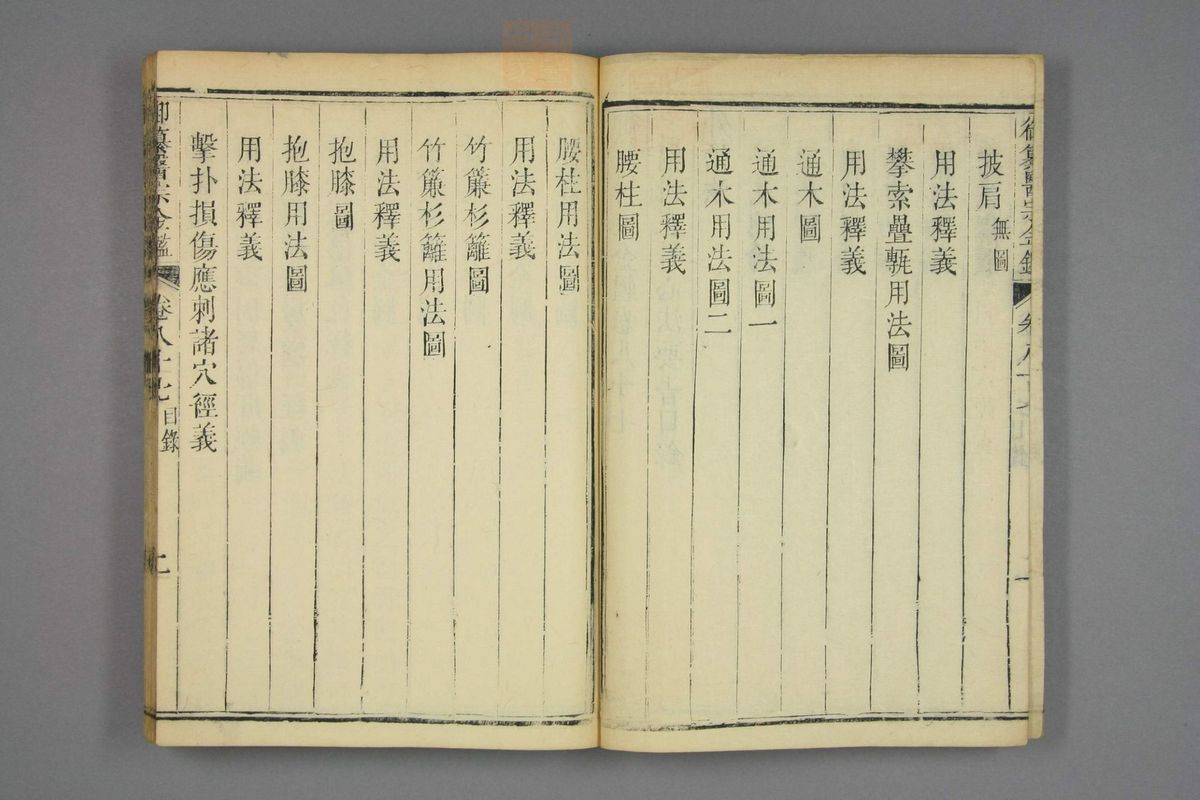 披肩無圖
用法釋義
攀索疊甎用法圖
用法釋義
通木圖
通木用法圖一
通木用法圖二
用法釋義
腰柱圖
腰柱用法圖
用法釋義
竹簾杉籬圖
竹簾杉籬用法圖
用法釋義
抱膝圖
抱膝用法圖
用法釋義
擊扑損傷應刺諸穴經義
御纂醫宗金鑑 卷八十七 目錄